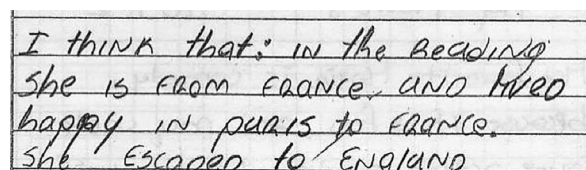 I think that: in the Reading
she is from France. and lived
happy in paris to France.
she Escaped to England